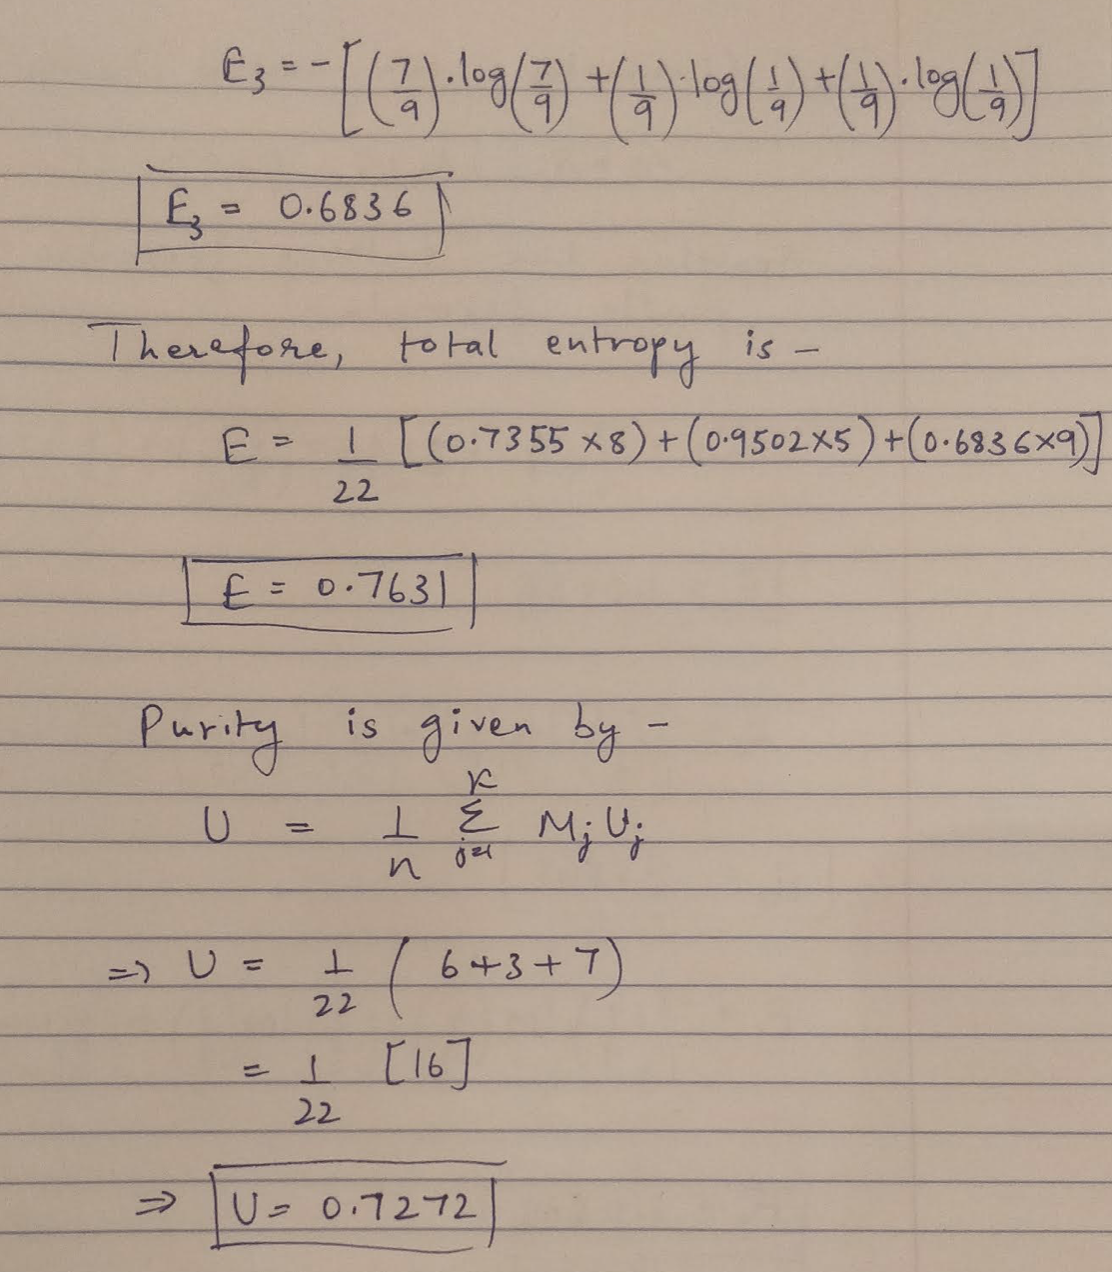 E₃ = -[(7/9)·log(7/9) + (1/9)·log(1/9) + (1/9)·log(1/9)]
E₃ = 0.6836
Therefore, total entropy is -
E = 1/22 [(0.7355 × 8) + (0.9502 × 5) + (0.6836 × 9)]
E = 0.7631
Purity is given by -
U = 1/n Σ_{j=1}^{K} M_j U_j
=> U = 1/22 (6 + 3 + 7)
= 1/22 [16]
=> U = 0.7272